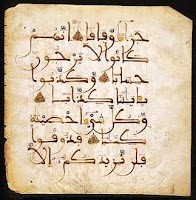 جزا وفاقا انهم
كانوا لا يرجون
حسابا وكذبوا
بايتنا كذابا
وكل شى احصينه
كتبا فذوقوا
فلن نزيدكم الا